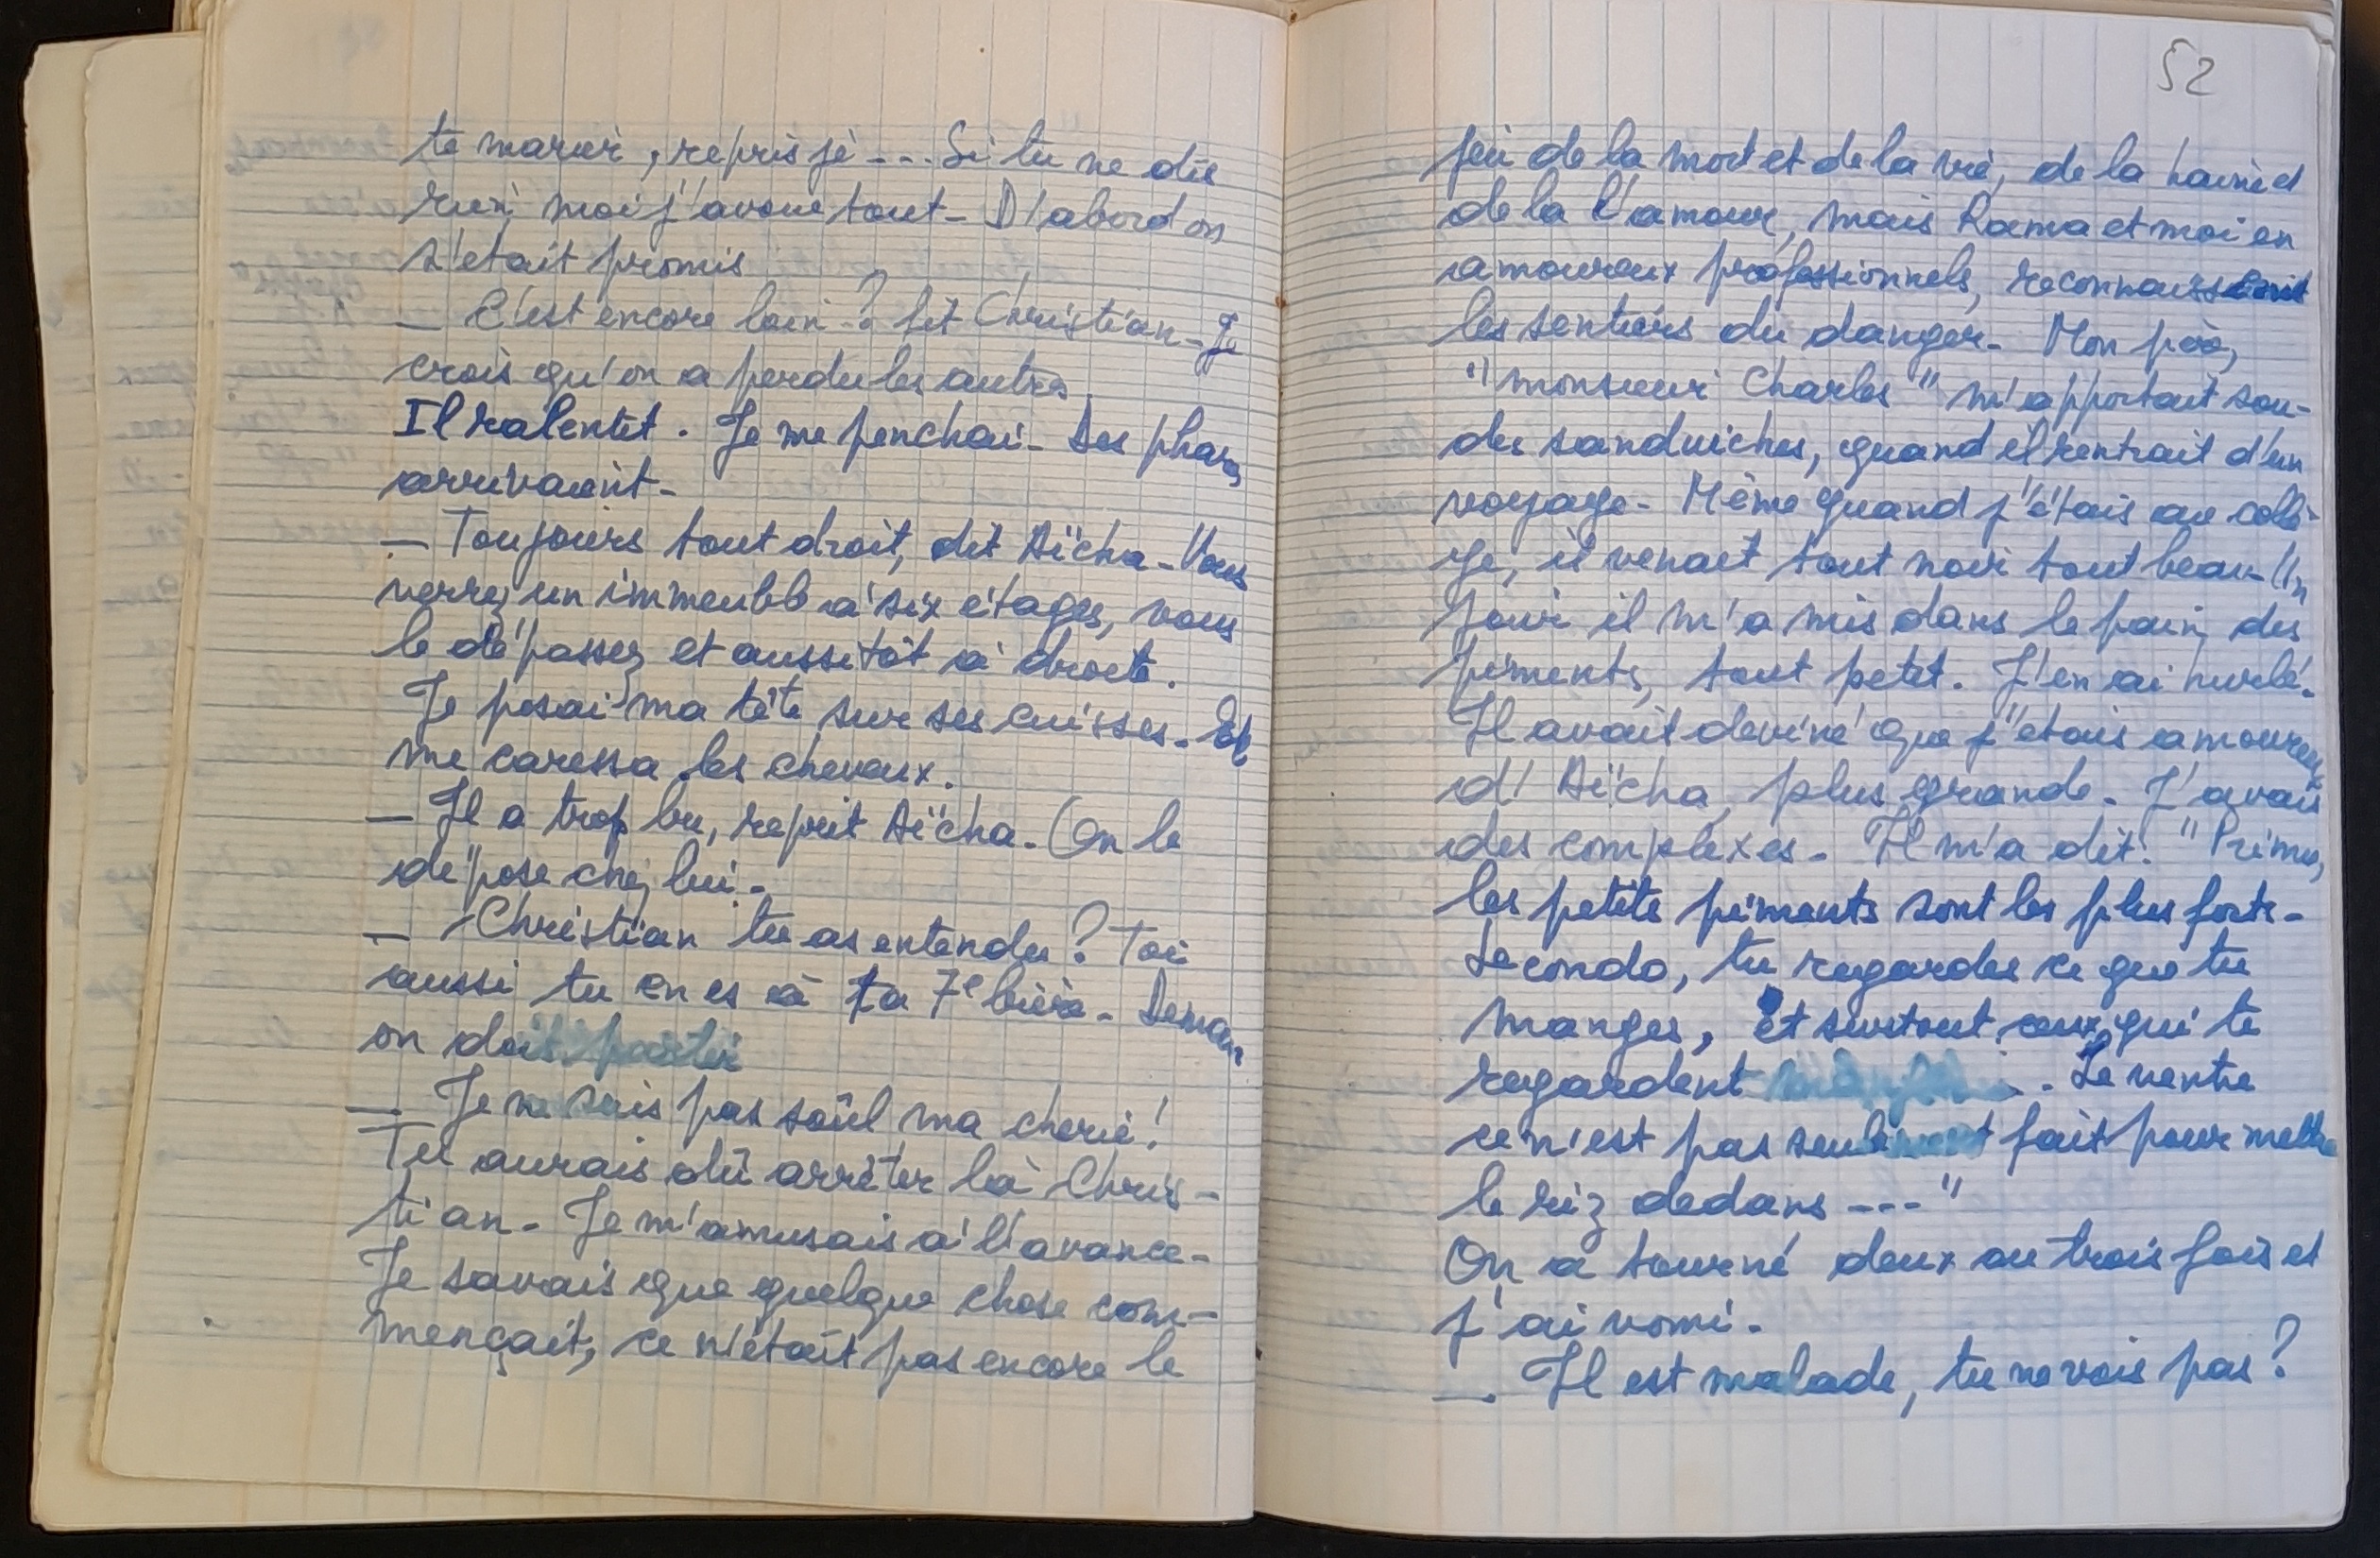 te marier, repris je --- Si tu ne dis
rien, moi j'avoue tout - D'abord on
s'était promis
— C'est encore loin ? fit Christian - Je
crois qu'on a perdu les autres.
Il ralentit. Je me penchai - Des phares
arrivaient -
— Toujours tout droit, dit Aïcha - Vous
verrez un immeuble à six étages, vous
le dépassez et aussitôt à droite.
Je posai ma tête sur ses cuisses - El
me caressa les cheveux.
— Il a trop bu, reprit Aïcha - On le
dépose chez lui -
— Christian tu as entendu ? Toi
aussi tu en es à ta 7e bière - Demain
on doit partir
— Je ne suis pas soûl ma chérie !
Tu aurais dû arrêter là Chris-
tian - Je m'amusais à l'avance -
Je savais que quelque chose com-
mençait, ce n'était pas encore le
52
jeu de la mort et de la vie, de la haine et
de la l'amour, mais Rama et moi en
amoureux professionnels, reconnaissaient
les sentiers du danger - Mon père,
"monsieur Charles" m'apportait sou-
des sandwiches, quand il rentrait d'un
voyage - Même quand j'étais au collè-
ge, il venait tout noir tout beau - Un
jour il m'a mis dans le pain, des
piments, tout petit. J'en ai hurlé -
Il avait deviné que j'étais amoureux
d'Aïcha, plus grande - J'avais
des complexes - Il m'a dit : "Primo,
les petits piments sont les plus forts -
Secondo, tu regardes ce que tu
manges, et surtout ceux qui te
regardent manger. Le ventre
ce n'est pas seulement fait pour mettre
le riz dedans ---"
On a tourné deux ou trois fois et
j'ai vomi -
— Il est malade, tu ne vois pas ?